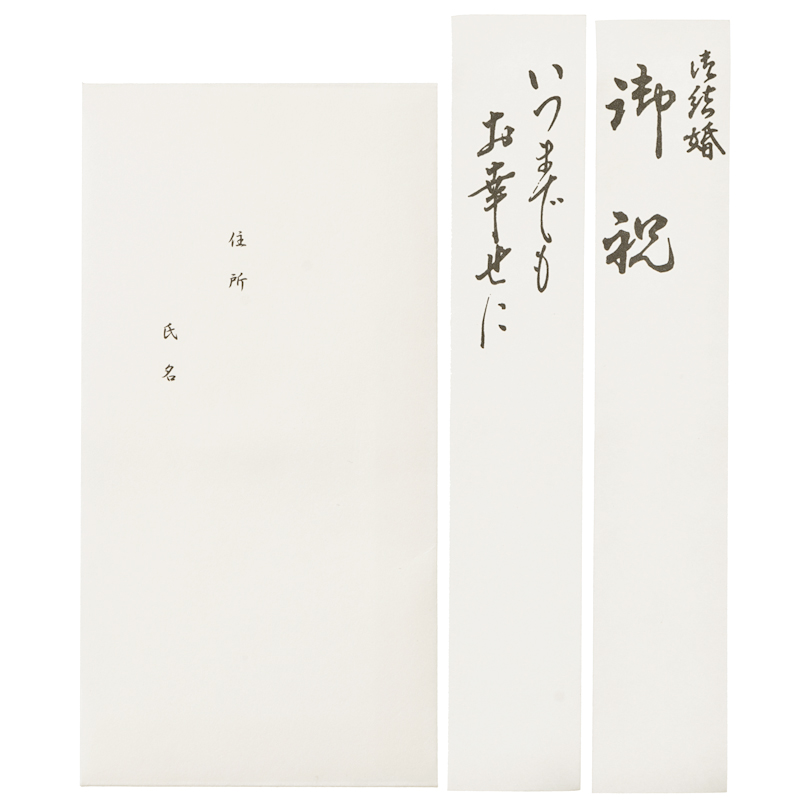 住所
氏名
いつまでも
お幸せに
御結婚
御祝